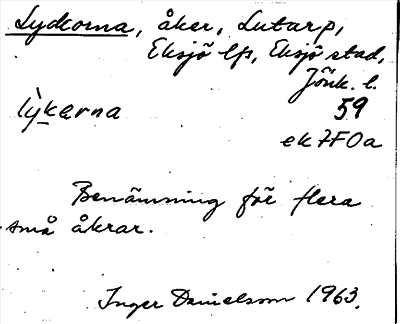 Lyckorna, åker, Lutarp,
Eksjö lfs, Eksjö stad,
Jönk. l.
lỳkarna 59
ek 7F0a
Benämning för flera
små åkrar.
Inger Danielsson 1963.